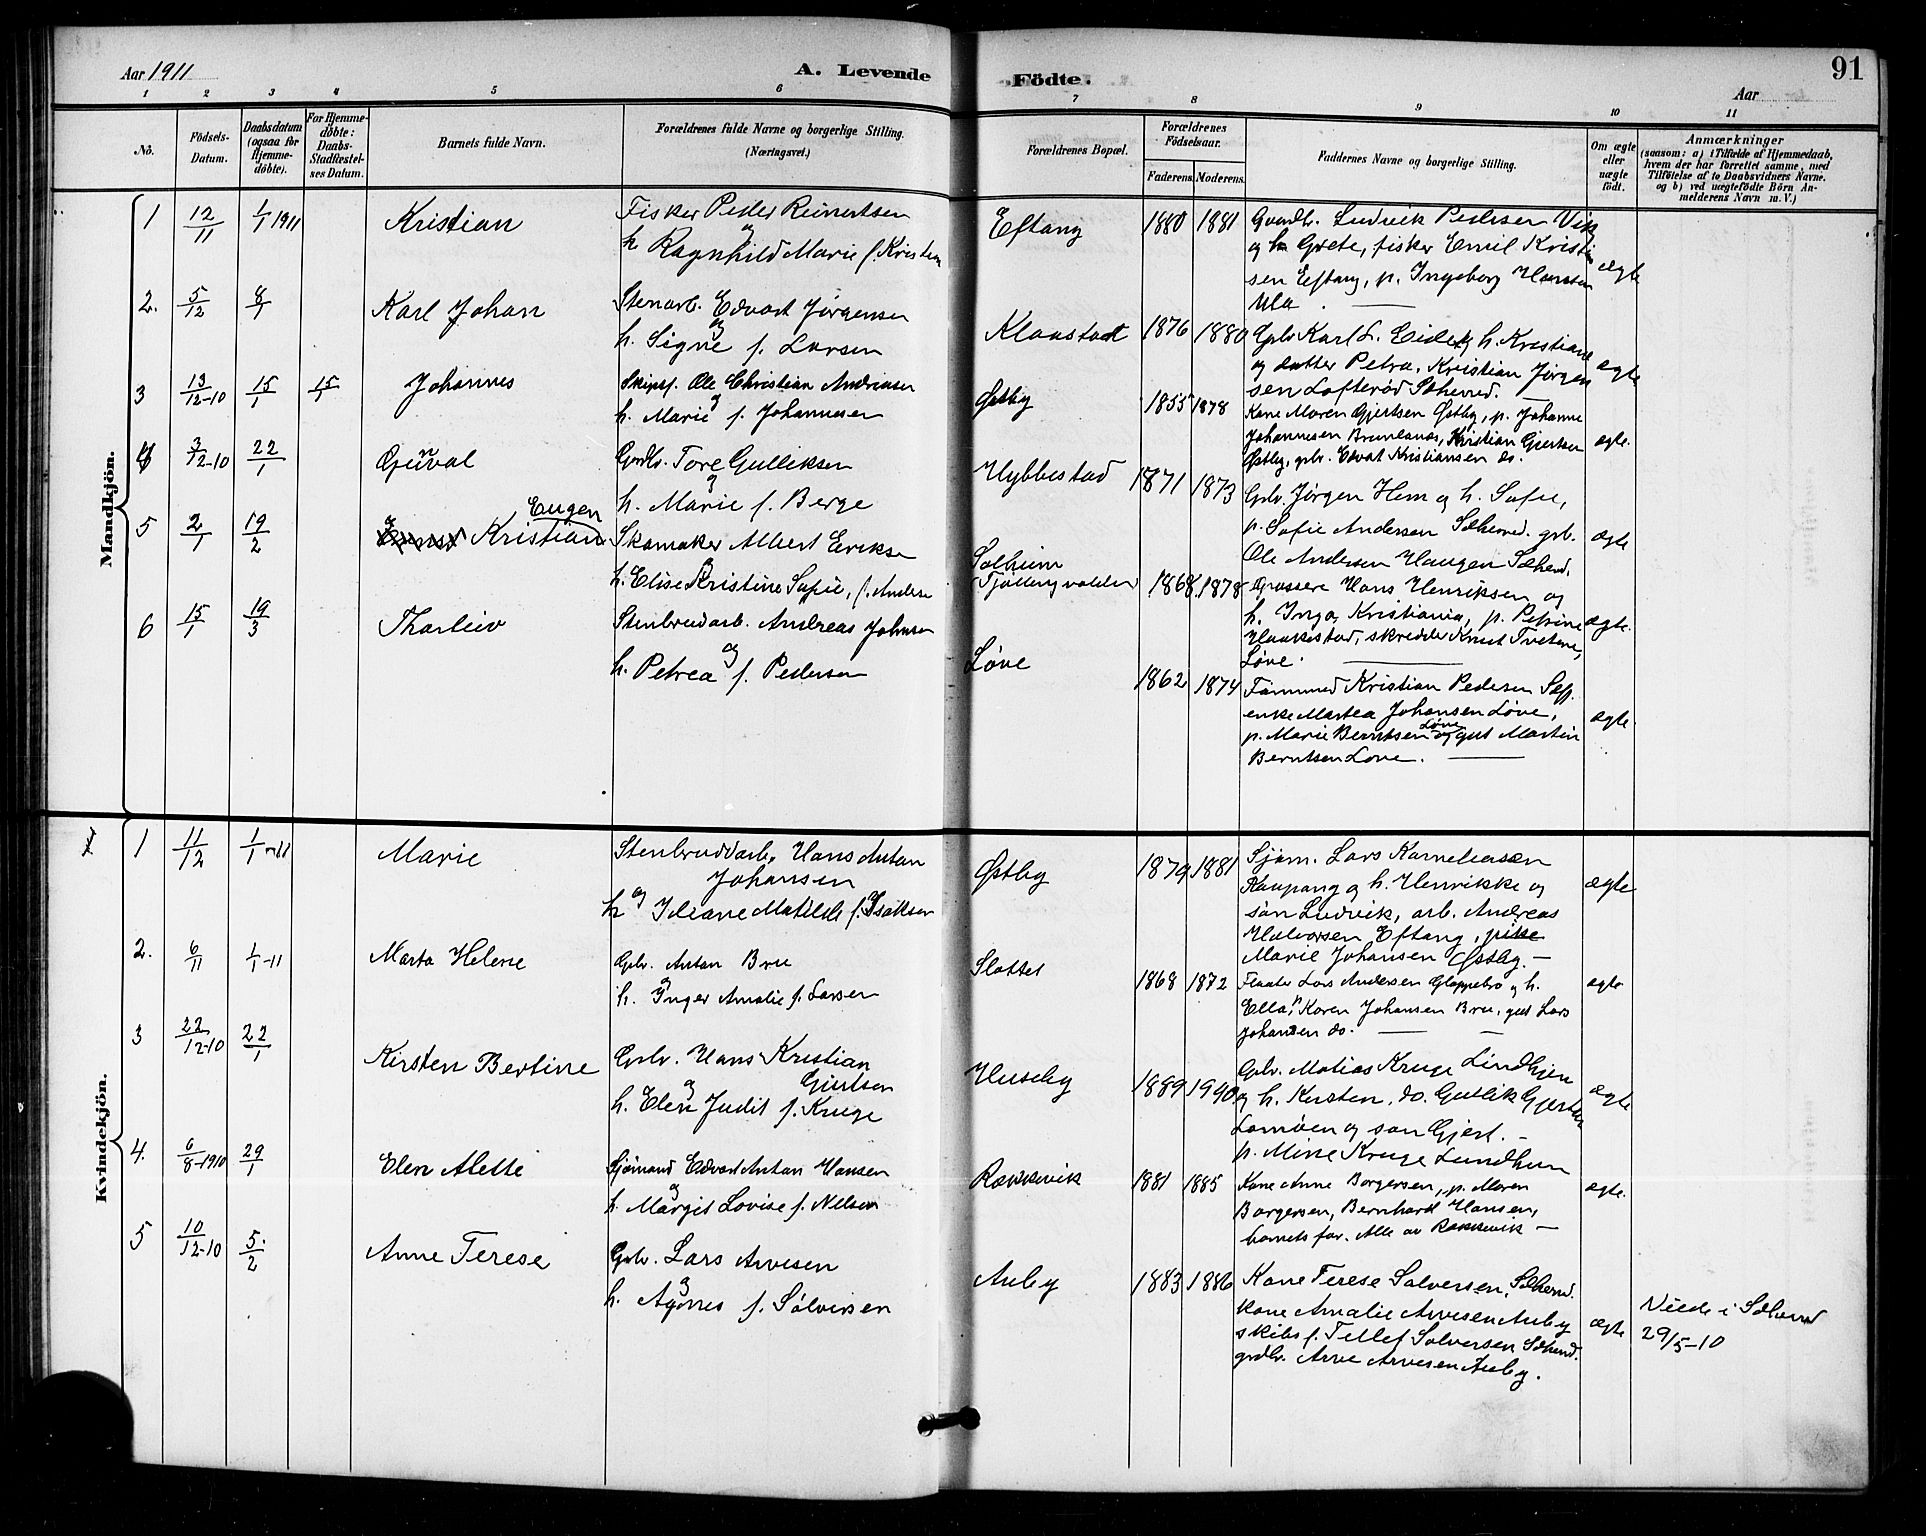 Aar 1911
A. Levende
Födte.
91
Aar
1 2 3 4 5 6 7 8 9 10 11
No.
Födsels-
Datum.
Daabsdatum
(ogsaa for
Hjemme-
döbte).
For Hjemme-
döbte:
Daabs-
Stadfæstel-
ses Datum.
Barnets fulde Navn.
Forældrenes fulde Navne og borgerlige Stilling.
(Næringsvei.)
Forældrenes Bopæl.
Forældrenes
Födselsaar.
Faderens. Moderens.
Faddernes Navne og borgerlige Stilling.
Om ægte
eller
uægte
födt.
Anmærkninger
(saasom: a) i Tilfælde af Hjemmedaab,
hvem der har forrettet samme, med
Tilföielse af to Daabsvidners Navne.
og b) ved uægtefödte Börn An-
melderens Navn m. V.)
Mandkjön.
1 12/11 1/1 1911 Kristian
Fisker Peder Reinertsen
og
h Ragnhild Marie f. Kristen
Eftang 1880 1881
Gaardb. Ludvik Pedersen Vik
og h Grete, fisker Emil Kristi
sen Eftang, p. Ingeborg Hansen
Ula
ægte
2. 5/12 8/1 Karl Johan
Stenarb. Edvart Jørgensen
og
h. Signe f. Larsen
Klaastadt 1876 1880
Gbr Karl L. Eide og h. Kristiane
og datter Petra, Kristian Jørgen
sen Lofterød Sæherred.
ægte
3 13/12-10 15/1 15/1 Johannes
Skipsf. Ole Christian Andreasen
og
h. Marie f. Johannesen
Østby 1855 1878
Kone Maren Gjertsen Østby, p. Johanne
Johannesen Brunlanes, Kristian Gjertsen
Østby, gbr. Edvat Kristiansen do.
ægte.
4 3/12-10 22/1 Gunval
Grdb. Tore Gulliksen
og
h. Marie f. Berge
Hybbestad 1871 1873
Gbr. Jørgen Hem og h. Sofie,
p. Sofie Andersen Sæherred. grb.
Ole Andersen Haugen Sæherd.
ægte
5 2/1 19/2 Kristian Eugen
Skomaker Albert Erikse
og
h. Elise Kristine Sofie, f. Anderse
Solheim
(Tjøllingvolden) 1868. 1878
Grossere Hans Henriksen og
h. Inga Kristiania, p. Petrine
Haakestad, skredder Knut Tvetene,
Løve.
ægte.
6 15/1 19/3 Thorleiv
Stenbrudarb. Andreas Johnsen
og
h. Petrea f. Pedersen
Løve 1862 1874
Tømmerd Kristian Pedersen
enke Martea Johansen Løve,
p. Marie Berntsen Løve og gut Martin
Berntsen Løve.
ægte
Kvindekjön.
1 11/12 1/1 -11 Marie
Stenbruddarb. Hans Antan
Johansen
og
h Idiane Matilde f. Isaksen
Østby 1879 1881
Sjøm. Lars Korneliusen
Kaupang og h. Henrikke og
søn Ludvik, arb. Andreas
Halvorsen Eftang, pike
Marie Johansen Østby. —
ægte
2. 6/11 1/1 -11 Marta Helene
Gbr. Antan Bru
og
h. Inger Amalie f. Larsen
Slottet 1868 1872
Flaater Lars Andersen Gloppebro og h.
Ella, Karen Johansen Bru, gut Lars
Johansen do.
ægte
3 22/12-10 22/1 Kirsten Bertine
Gbr. Hans Kristian
Gjertsen
og
h. Elen Judit f. Kruge
Huseby 1889 1990
Gbr. Matias Kruge Lindhjem
og h. Kirsten, do. Gutlik Gjertsen
Lamøen og søn Gjert. —
p. Mine Kruge Lundhem
ægte
4. 6/8-1910 29/1 Elen Alette
Sjømand Edvart Antan Hansen
og
h. Margit Lovise f. Nilsen
Rakkevik 1881 1885
Kone Anne Borgersen, p. Maren
Borgersen, Bernhard Hansen,
barnets far. Alle av Rakkevik —
ægte.
5 10/12-10 5/2 Anne Terese
Gbr. Lars Arvesen
og
h. Agnes f. Sølversen
Auby 1883 1886
Kone Terese Solversen, Sæherred.
kone Amalie Arvesen Auby
skibsf. Tellef Solversen Sæherred.
grdbr. Arve Arvesen Auby.
ægte
Viede i Sæherred
29/5-10